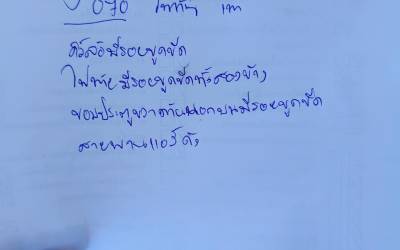 070 ไททัน เทา
คิ้วล้อมีรอยขูดขีด
ไฟท้ายมีรอยขูดขีดทั้งสองข้าง
ขอบประตูขวาด้านนอกบนมีรอยขูดขีด
สายพานแอร์ดัง